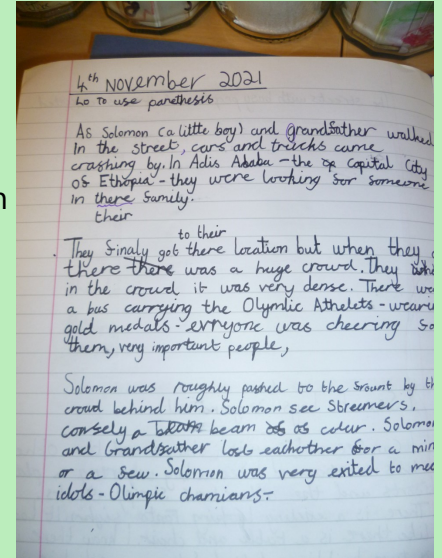 n
4th November 2021
Lo To use parethesis
As Solomon (a little boy) and grandfather walked
In the street, cars and trucks came
crashing by. In Adis Ababa - the capital City
of Ethopia - they were looking for someone
in there family.
their
to their
They finaly got there location but when they
there there was a huge crowd. They
in the crowd it was very dense. There
a bus carrying the Olymlic Athelets -
gold medals - evryone was cheering
them, very important people,
Solomon was roughly pashed to the frount by
croud behind him. Solomon see Streemers,
beam of as colur.
and Grandfather lost eachother for a
or a few. Solomon was very exited to
idols - Olimpic chamians-